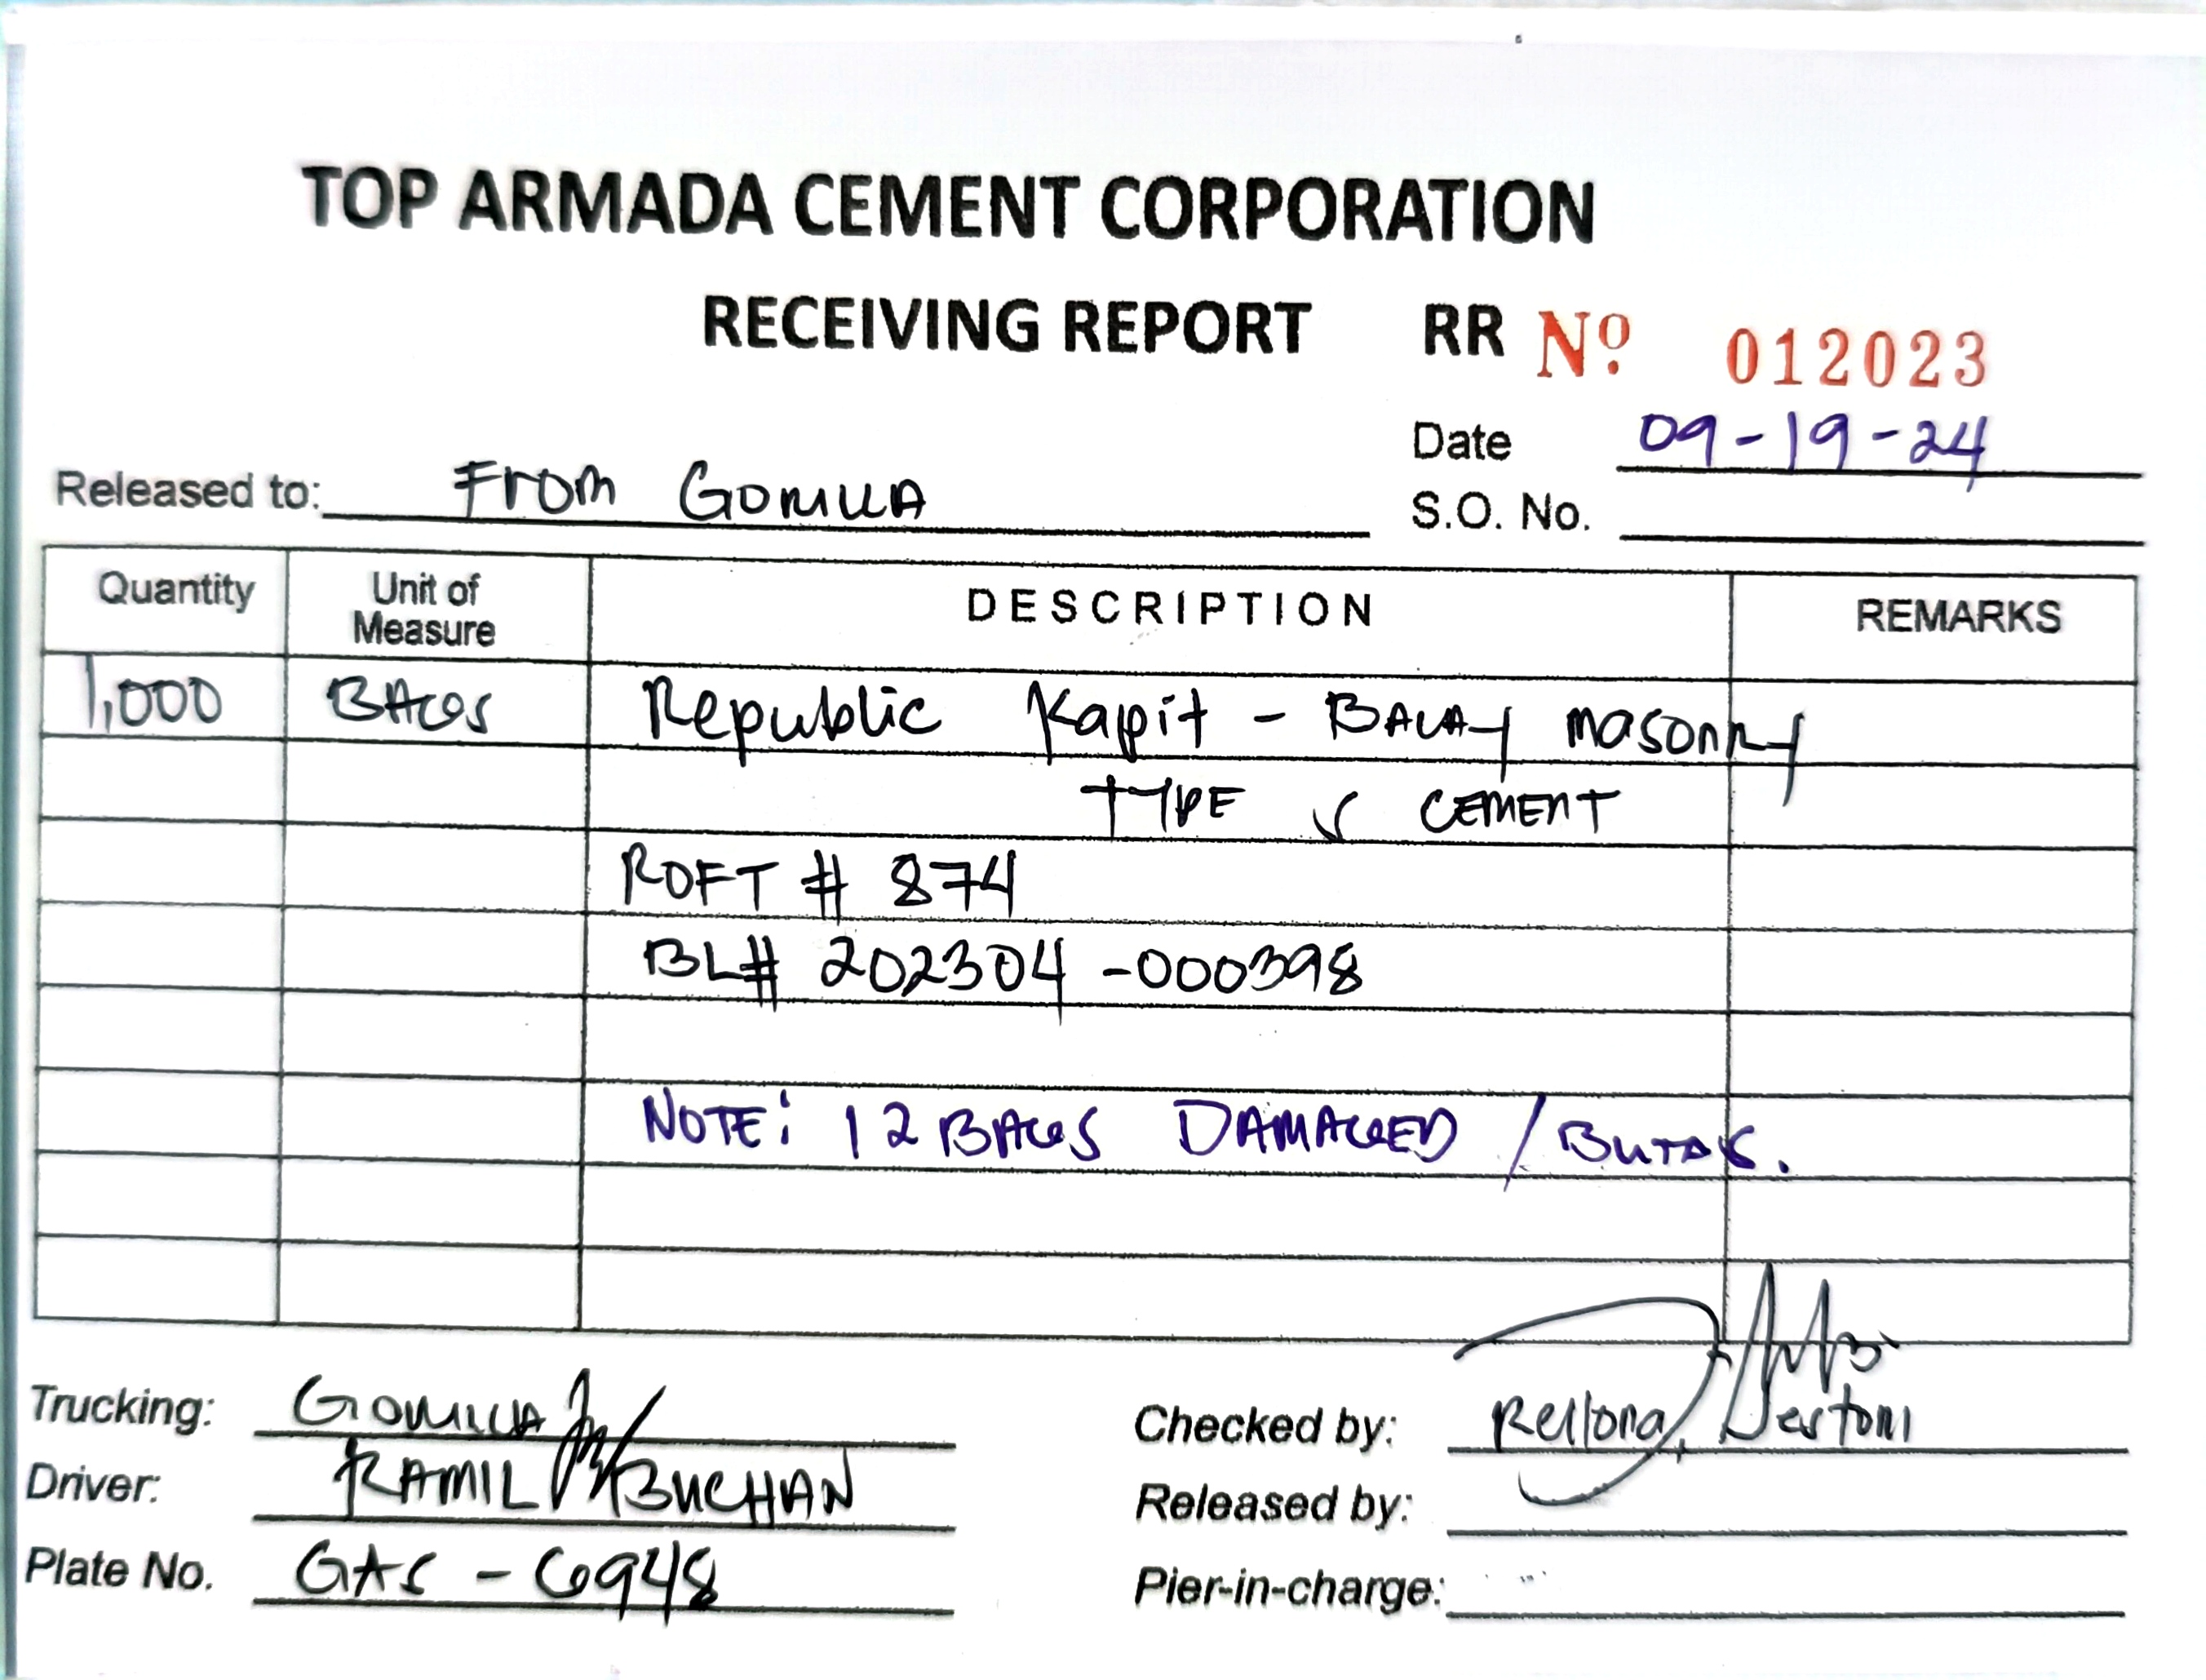 TOP ARMADA CEMENT CORPORATION
RECEIVING REPORT RR Nº 012023
Date 09-19-24
Released to: From GOMILLA
S.O. No.
Quantity Unit of Measure DESCRIPTION REMARKS
1,000 BAGS Republic Kapit - BALAY masonry
TYPE S CEMENT
ROFT # 874
BL# 202304-000398
NOTE: 12 BAGS DAMAGED / BUTAS.
Trucking: GOMILLA
Driver: RAMIL BUCHAN
Plate No. GAS - 6948
Checked by: Rellona,
Released by:
Pier-in-charge: